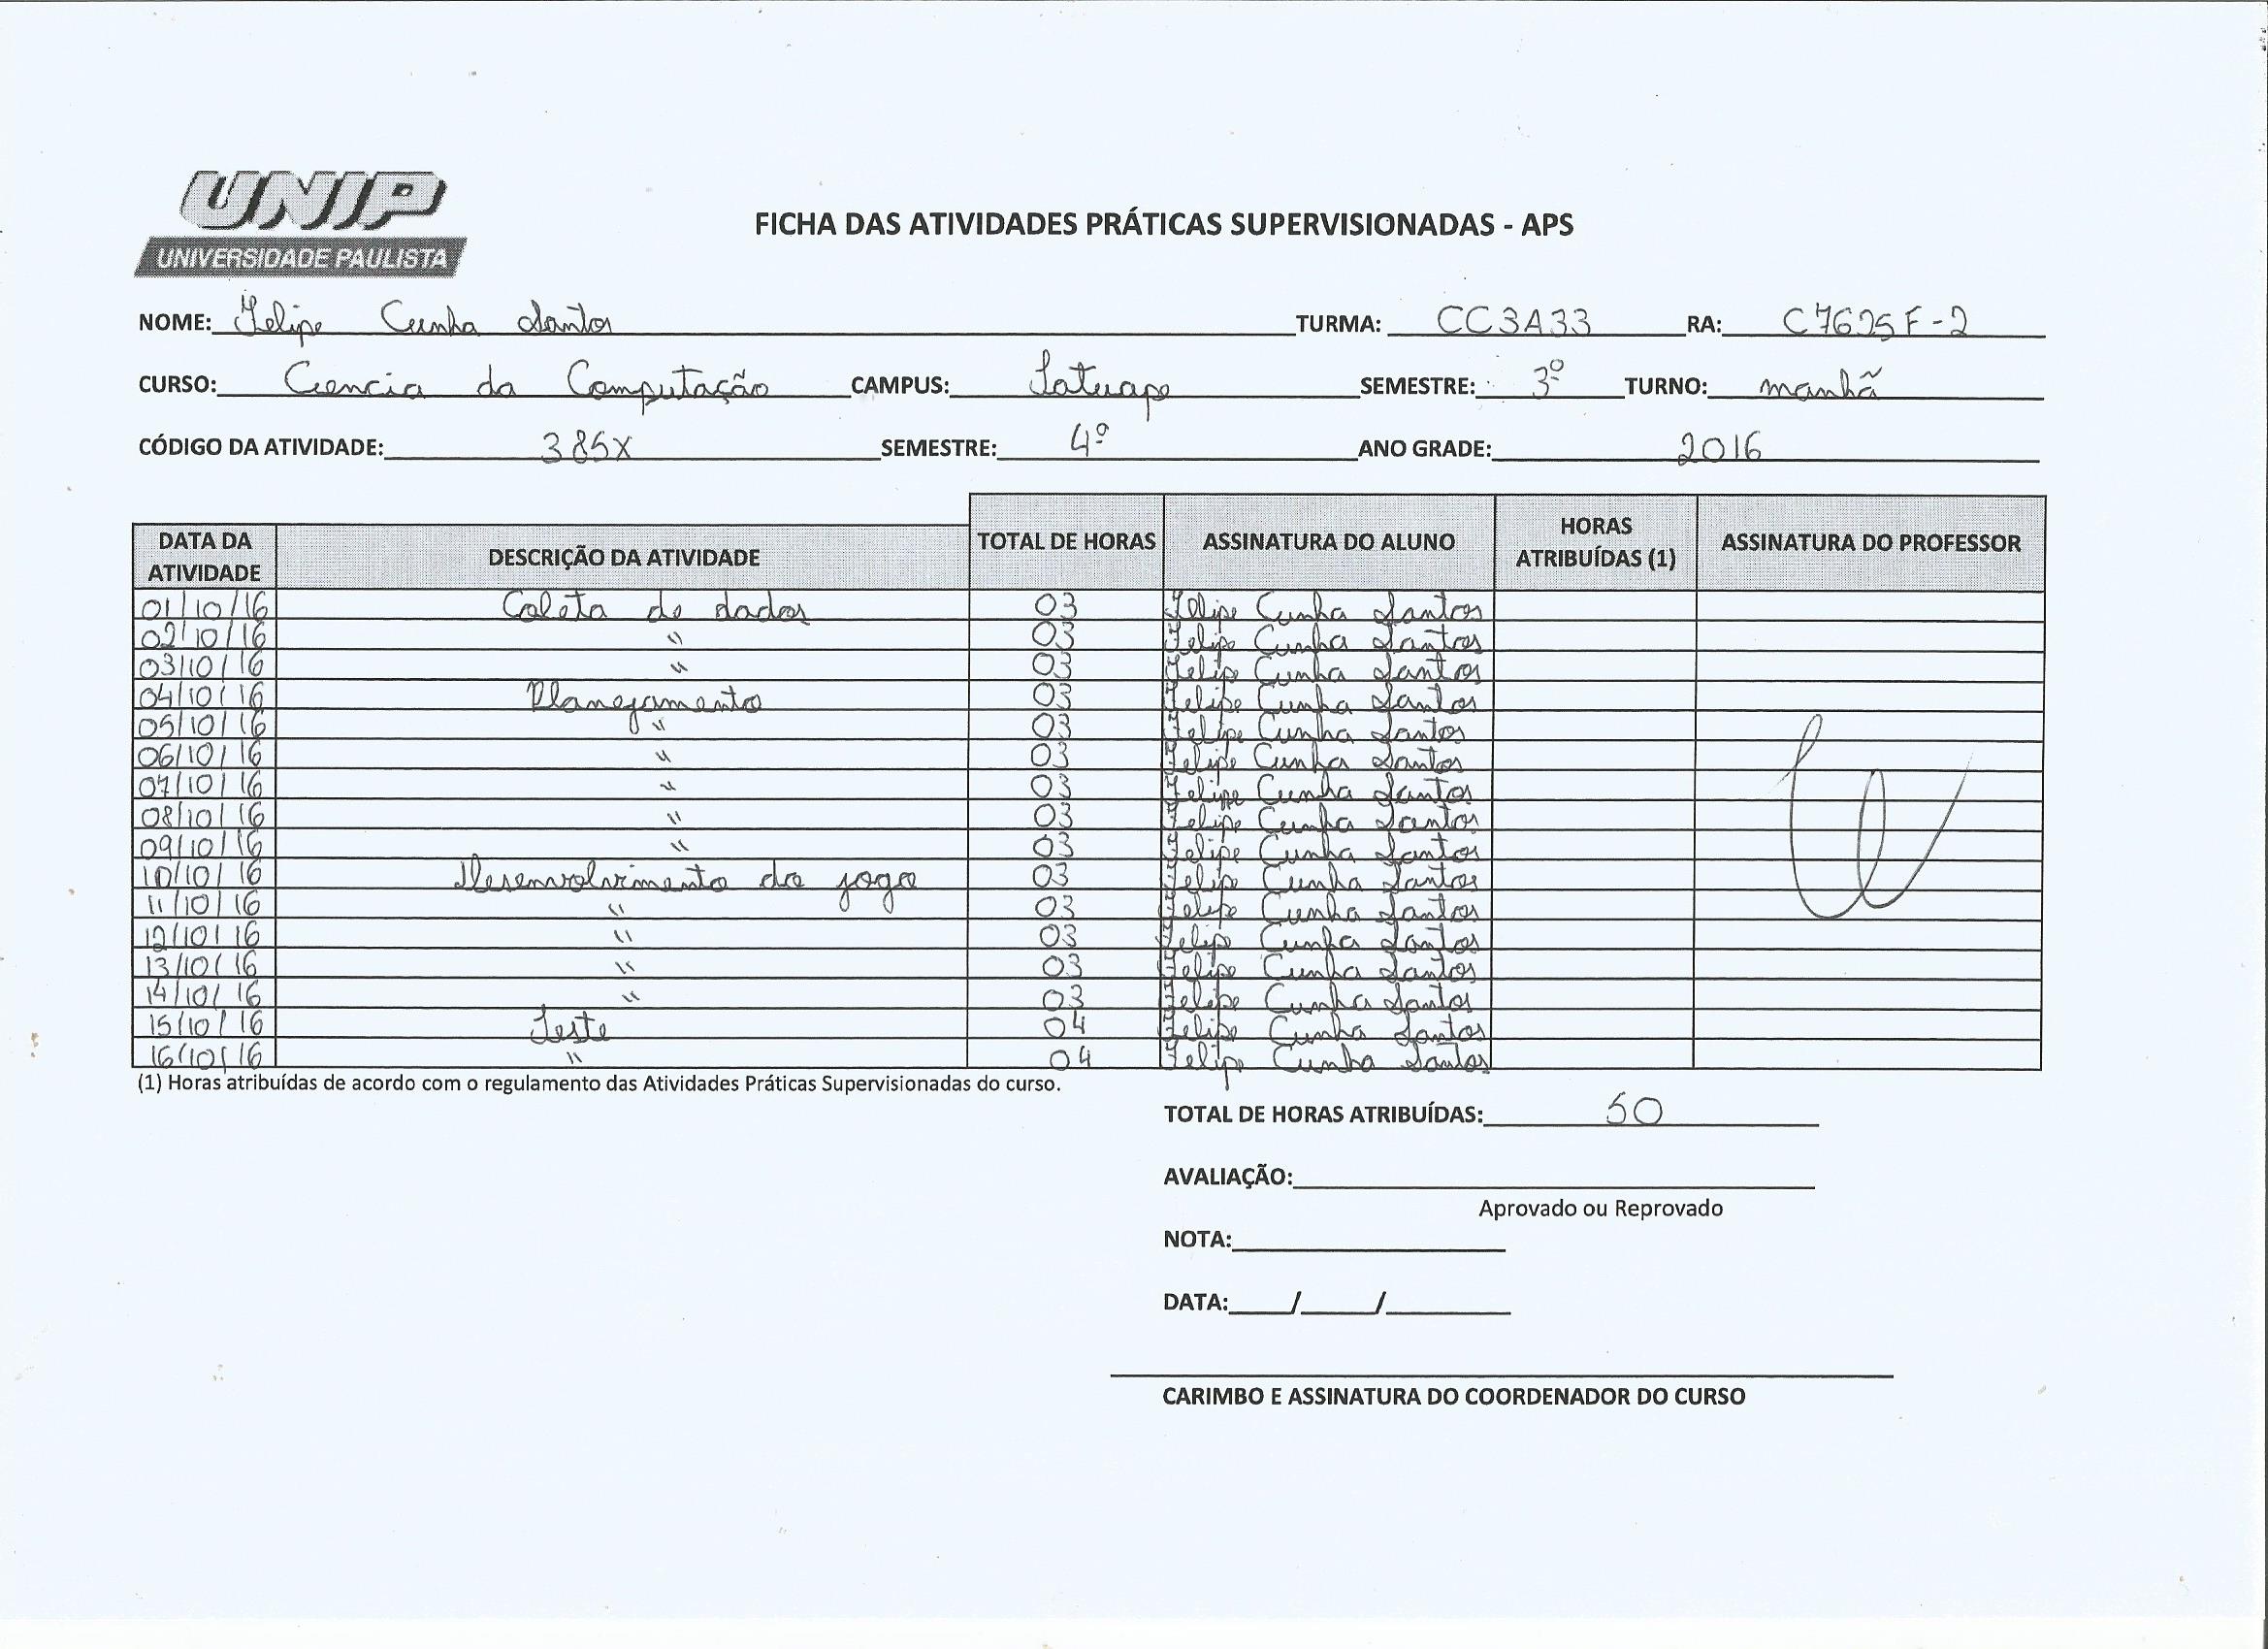 UNIP
UNIVERSIDADE PAULISTA
FICHA DAS ATIVIDADES PRÁTICAS SUPERVISIONADAS - APS
NOME: Felipe Cunha Santos TURMA: CC3A33 RA: C7625F-2
CURSO: Ciencia da Computação CAMPUS: Tatuape SEMESTRE: 3º TURNO: manhã
CÓDIGO DA ATIVIDADE: 385X SEMESTRE: 4º ANO GRADE: 2016
DATA DA ATIVIDADE DESCRIÇÃO DA ATIVIDADE TOTAL DE HORAS ASSINATURA DO ALUNO HORAS ATRIBUÍDAS (1) ASSINATURA DO PROFESSOR
01/10/16 Coleta de dados 03 Felipe Cunha Santos
02/10/16 " 03 Felipe Cunha Santos
03/10/16 " 03 Felipe Cunha Santos
04/10/16 Planejamento 03 Felipe Cunha Santos
05/10/16 " 03 Felipe Cunha Santos
06/10/16 " 03 Felipe Cunha Santos
07/10/16 " 03 Felipe Cunha Santos
08/10/16 " 03 Felipe Cunha Santos
09/10/16 " 03 Felipe Cunha Santos
10/10/16 Desenvolvimento do jogo 03 Felipe Cunha Santos
11/10/16 " 03 Felipe Cunha Santos
12/10/16 " 03 Felipe Cunha Santos
13/10/16 " 03 Felipe Cunha Santos
14/10/16 " 03 Felipe Cunha Santos
15/10/16 Teste 04 Felipe Cunha Santos
16/10/16 " 04 Felipe Cunha Santos
(1) Horas atribuídas de acordo com o regulamento das Atividades Práticas Supervisionadas do curso.
TOTAL DE HORAS ATRIBUÍDAS: 50
AVALIAÇÃO:
Aprovado ou Reprovado
NOTA:
DATA: / /
CARIMBO E ASSINATURA DO COORDENADOR DO CURSO